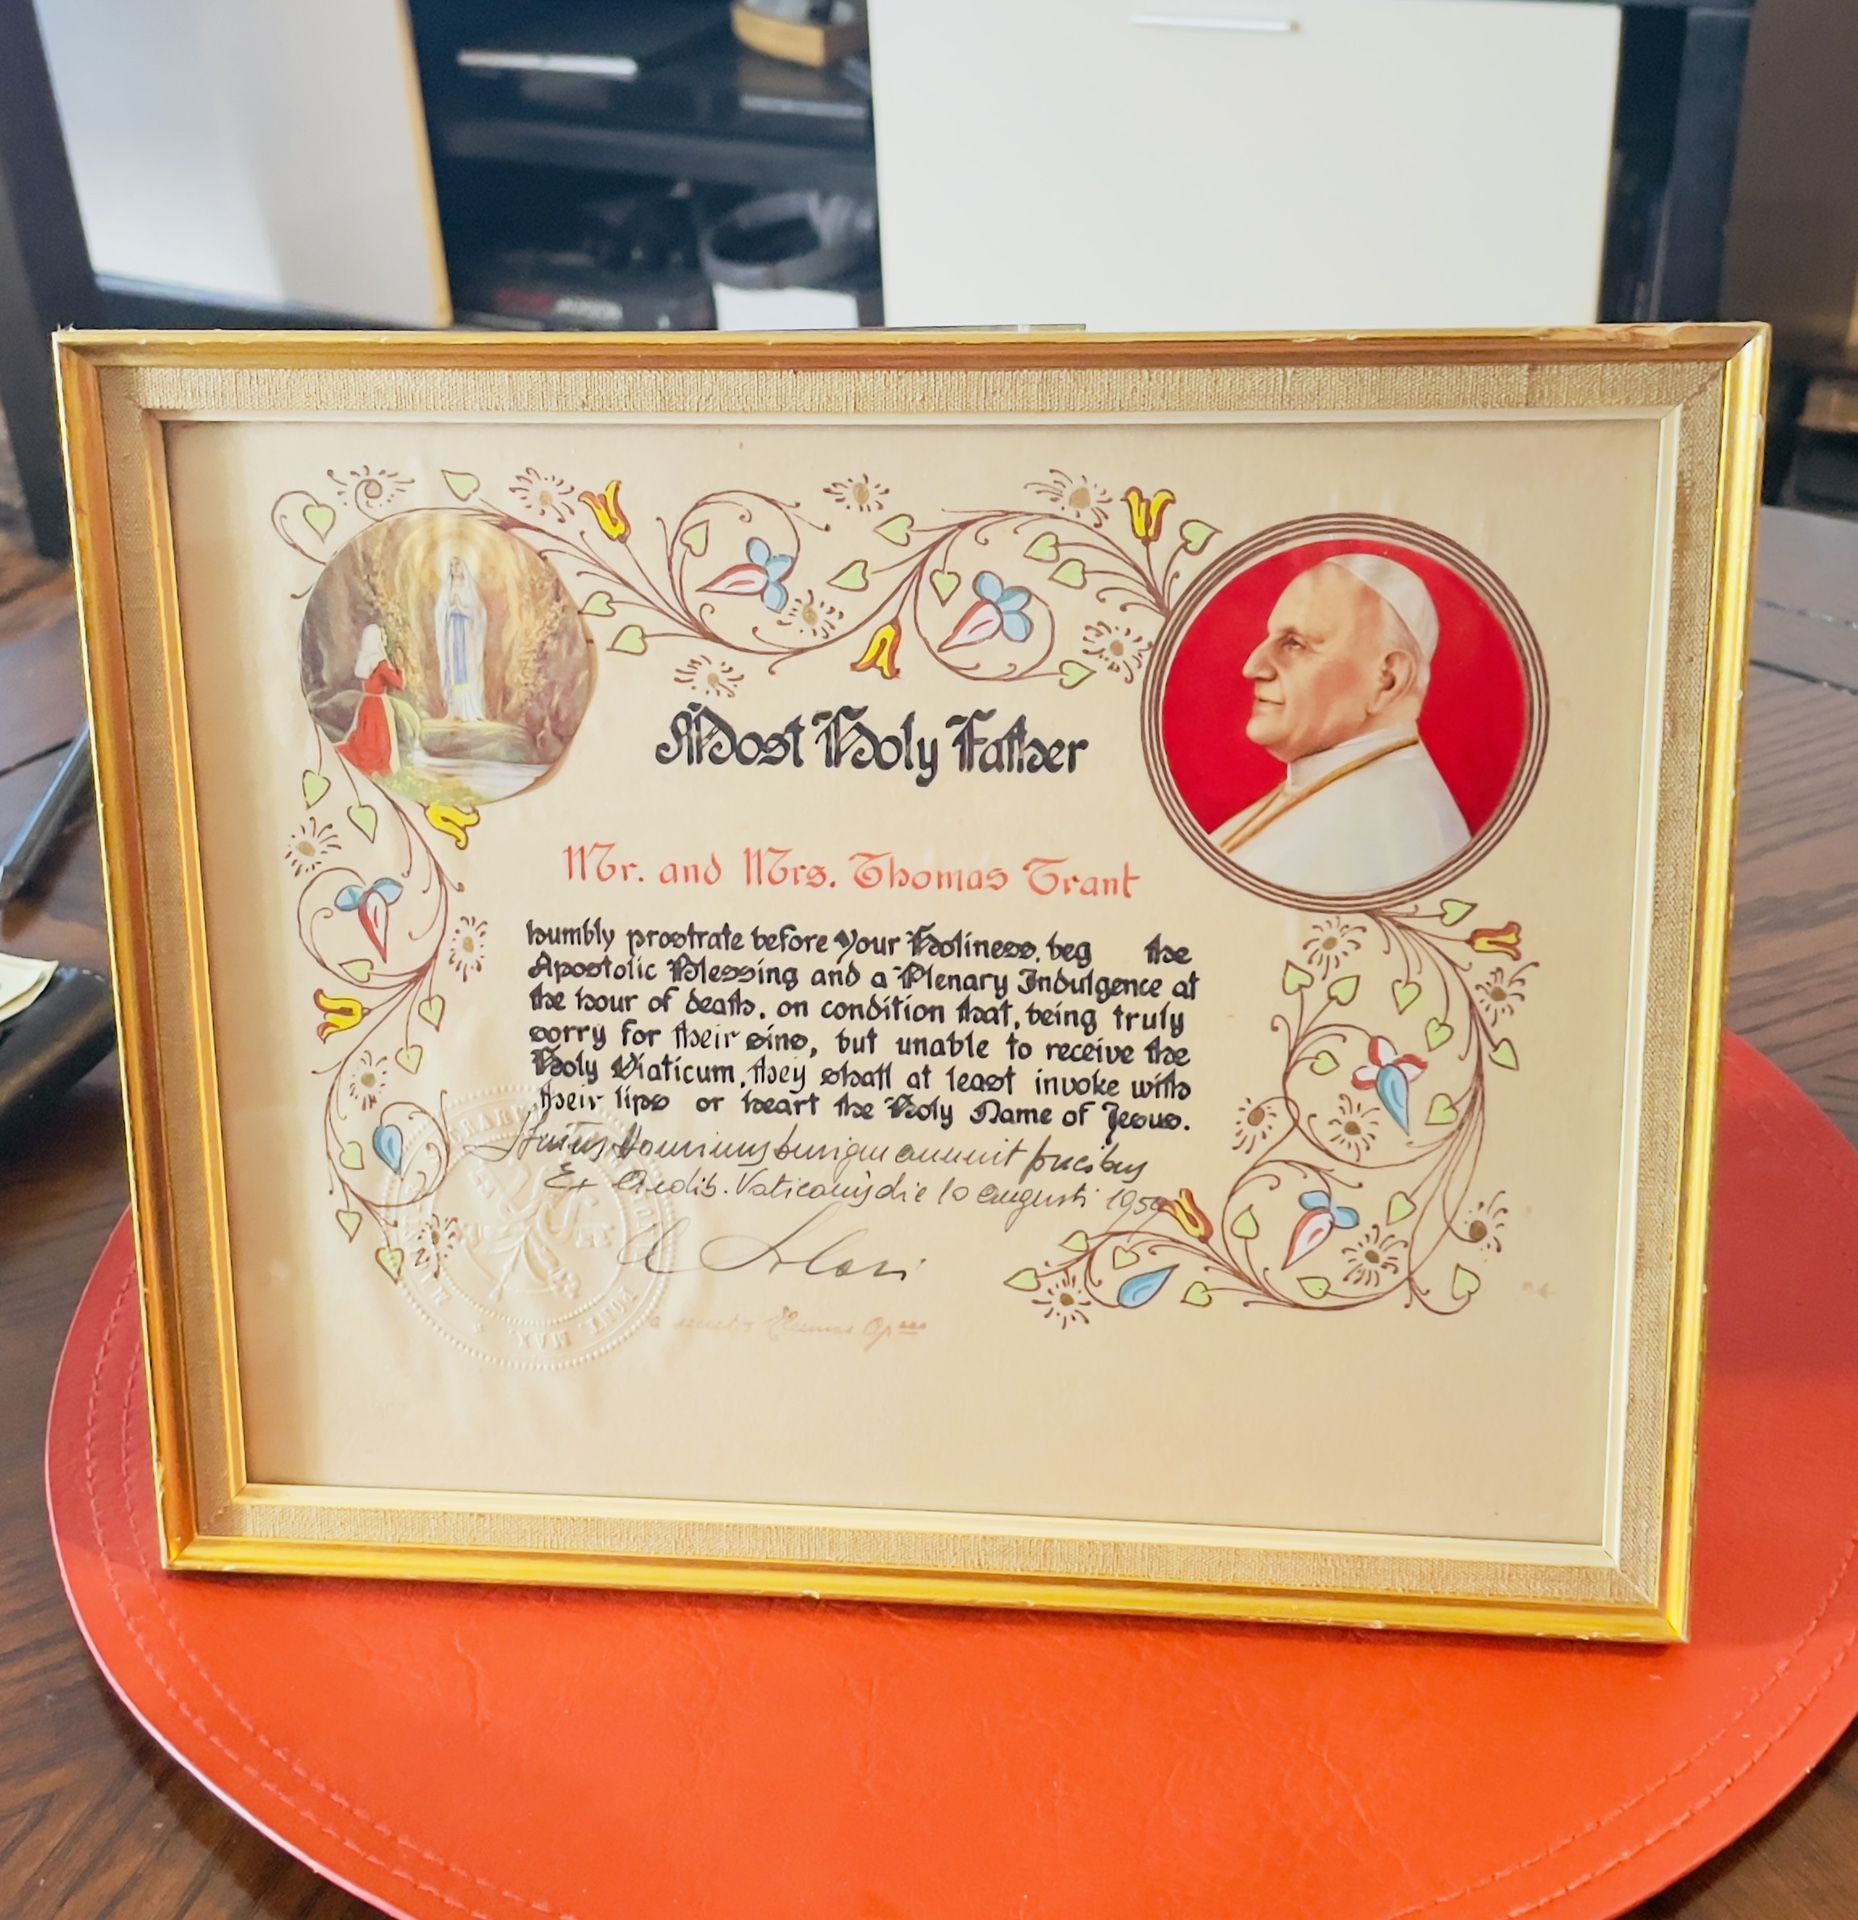 Most Holy Father
Mr. and Mrs. Thomas Grant
humbly prostrate before Your Holiness, beg the
Apostolic Blessing and a Plenary Indulgence at
the hour of death, on condition that, being truly
sorry for their sins, but unable to receive the
Holy Viaticum, they shall at least invoke with
their lips or heart the Holy Name of Jesus.
annuit precibus
Ex Aedib. Vaticanis die 10 augusti 1959
PONT. MAX.